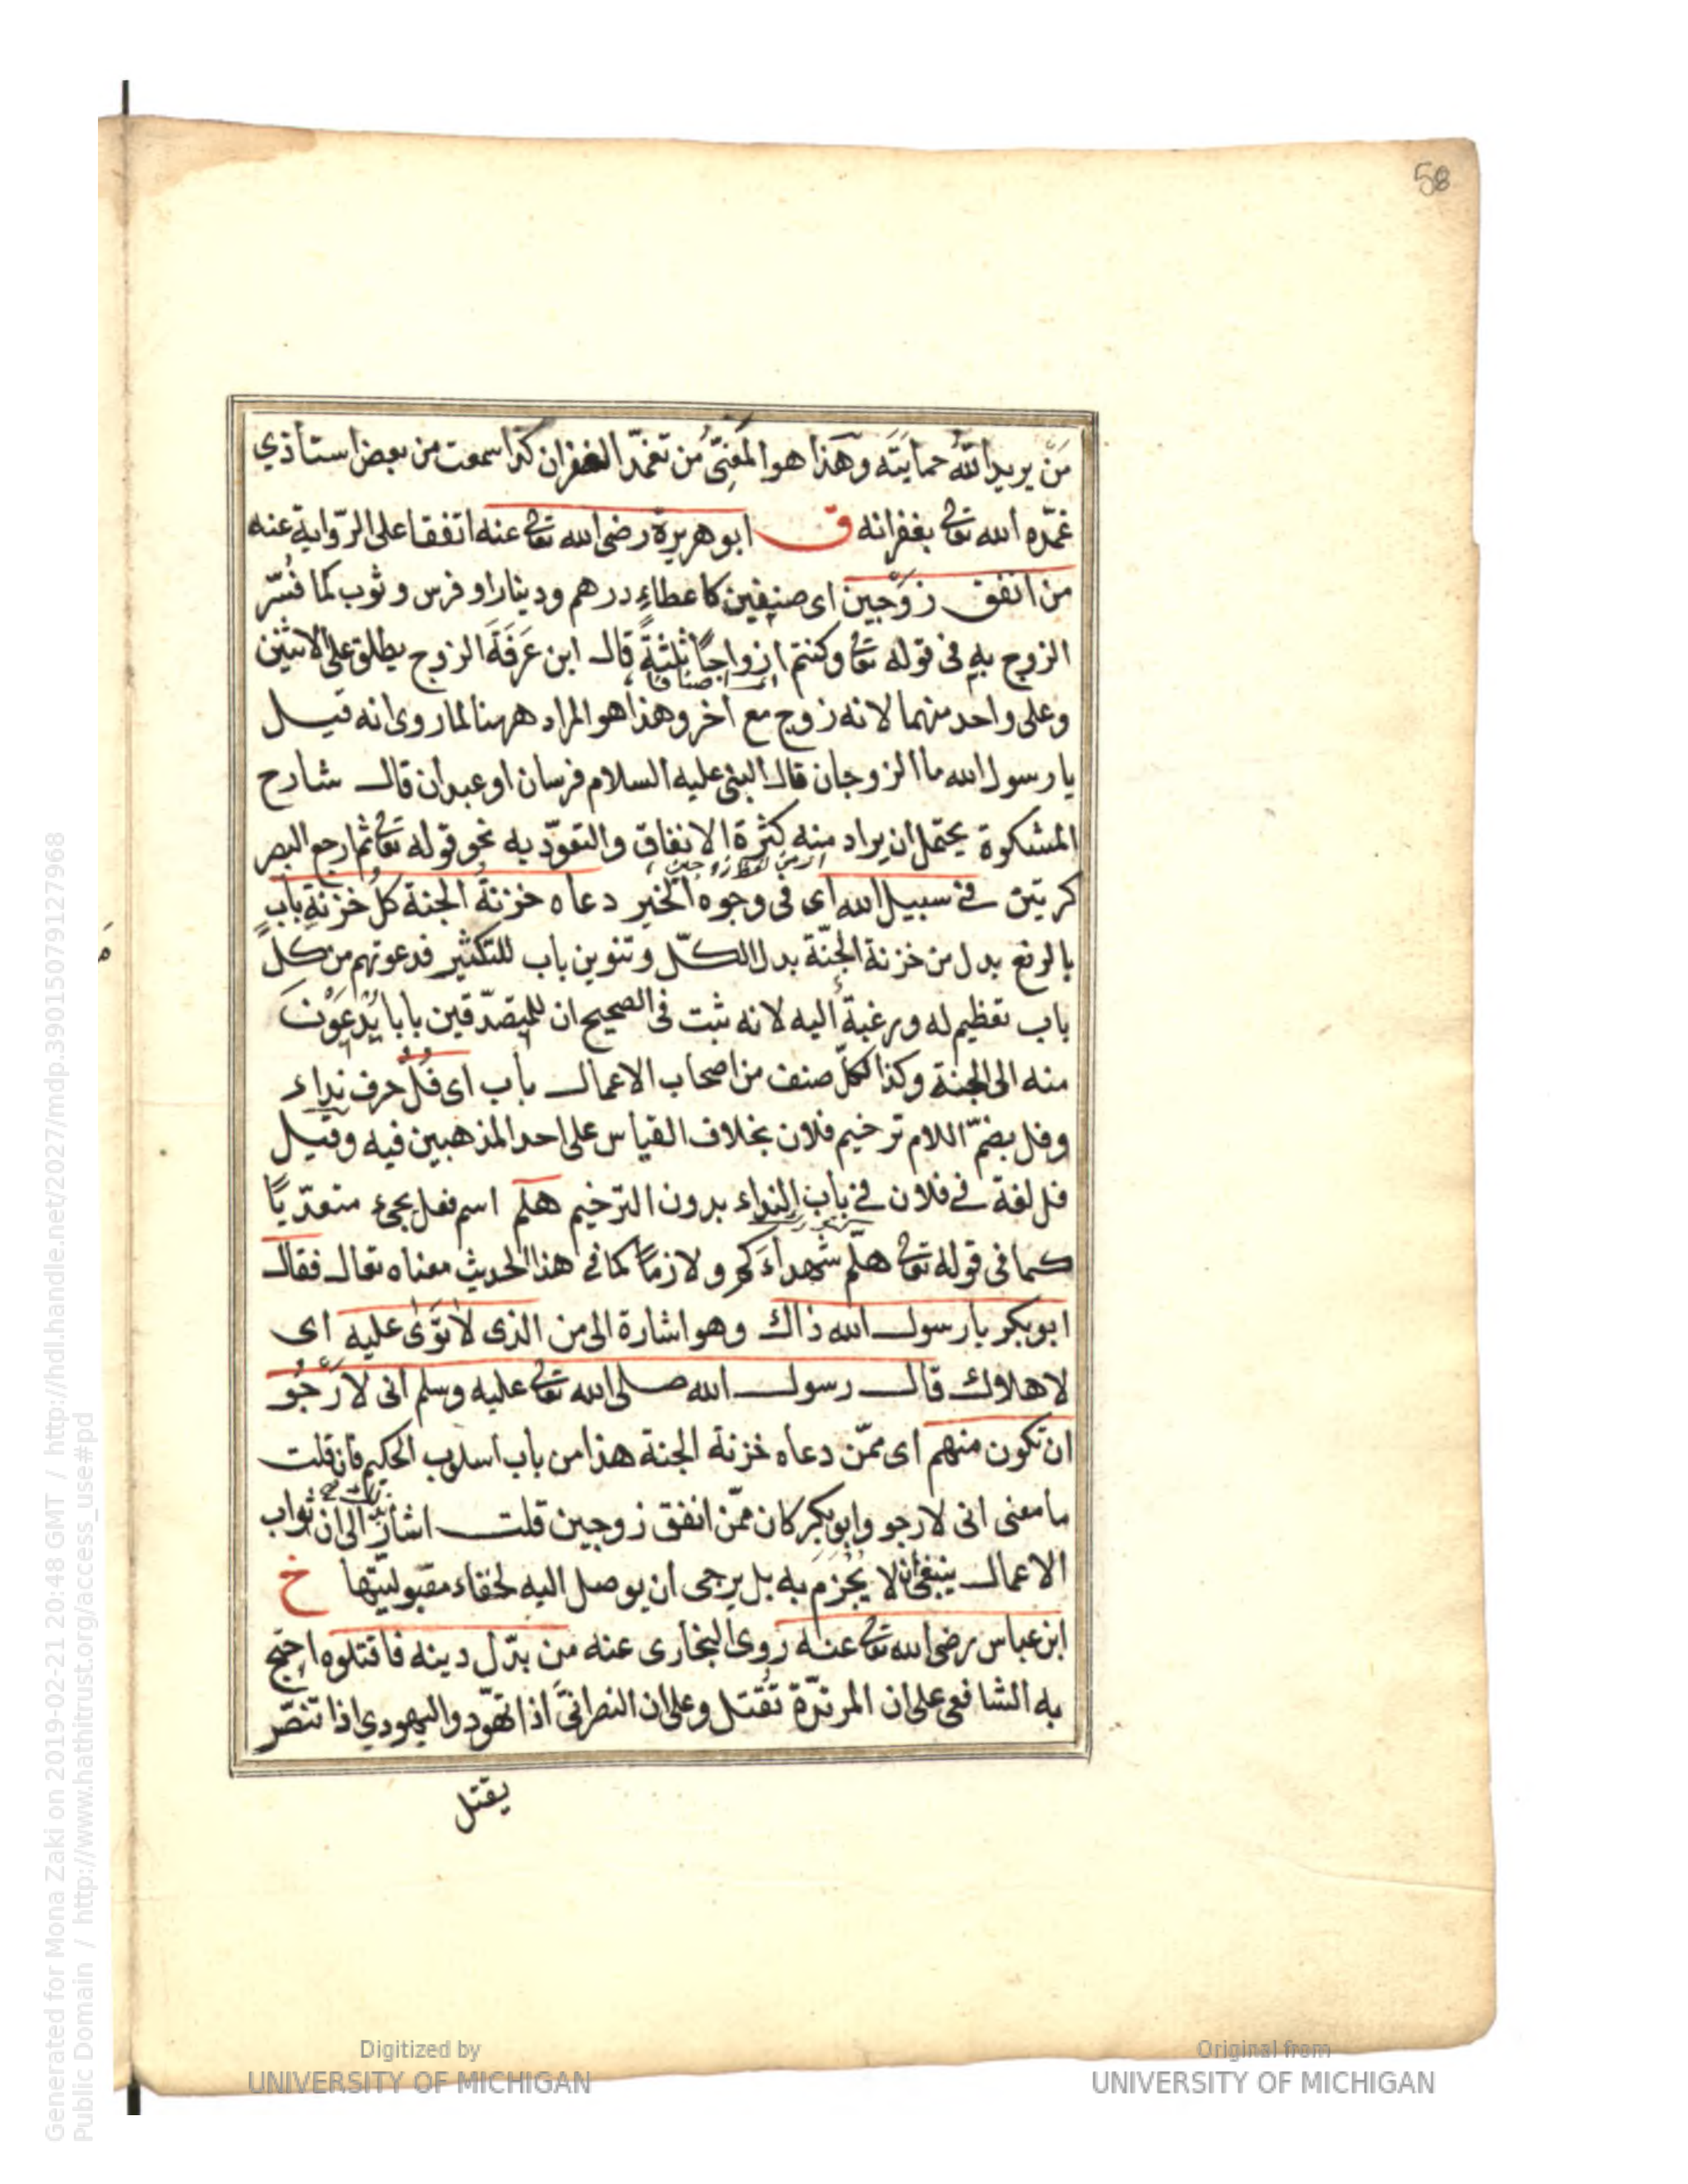 58
مَنْ يريد اللّٰهُ حمايتَه وهَذا هو المَعْنِيّ مِن تغمّد الغفران كذا سمعت من بعض استاذي
غمّده الله تعالى بغفرانه ق ابو هريرة رضى الله تعالى عنه اتفقا على الرّواية عنه
من انفق زوْجين اى صنفين كاعطاءِ درهم ودينار او فرس وثوب كما فُسّر
الزوج به فى قوله تعالى وكنتم ازواجًا ثلثةً قال ابن عَرَفَةَ الزوج يطلق على الاثنين
اى اصنافا
وعلى واحد منهما لانه زوج مع آخر وهذا هو المراد ههنا لما روى انه قيل
يا رسول الله ما الزوجان قال النبى عليه السلام فرسان او عبدان قال شارح
المشكوة يحتمل ان يراد منه كثرة الانفاق والتعوّد به نحو قوله تعالى ثم ارجع البصر
اى من لفظ زوجين
كرتين فى سبيل الله اى فى وجوه الخير دعاه خزنةُ الجنة كلُّ خزنةِ بابٍ
بالرفع بدل من خزنة الجنّة بدل الكلّ وتنوين باب للتكثير فدعوتهم من كلّ
باب تعظيم له ورغبة اليه لانه ثبت فى الصحيح ان للمتصدّقين بابا يُدْعَوْنَ
منه الى الجنة وكذا لكلّ صنف من اصحاب الاعمال باب اى فُلُ حرف نداء
وفل بضمّ اللام ترخيم فلان بخلاف القياس على احد المذهبين فيه وقيل
فل لغة فى فلان فى باب النداء بدون الترخيم هلم اسم فعل يجئ متعدّيًا
كما فى قوله تعالى هلّم شهداءَكم ولازمًا كما فى هذا الحديث معناه تعال فقال
ابو بكر يا رسول الله ذاك وهو اشارة الى من الذى لا تَوَى عليه اى
لا هلاك قال رسول الله صلى الله تعالى عليه وسلم انى لارْجُو
ان تكون منهم اى ممّن دعاه خزنة الجنة هذا من باب اسلوب الحكيم فان قلت
ما معنى انى لارجو وابو بكر كان ممّن انفق زوجين قلت اشار الى ان ثواب
الاعمال ينبغى ان لا يُجْزَم به بل يرجى ان يوصل اليه لخفاء مقبوليّتها خ
ابن عباس رضى الله تعالى عنه روى البخارى عنه من بدّل دينه فاقتلوه احتج
به الشافعى على ان المرتدّة تُقتل وعلى ان النصرانىَّ اذا تهوّد واليهودي اذا تنصّر
يقتل
Generated for Mona Zaki on 2019-02-21 20:48 GMT / http://hdl.handle.net/2027/mdp.39015079127968
Public Domain / http://www.hathitrust.org/access_use#pd
Digitized by
UNIVERSITY OF MICHIGAN
Original from
UNIVERSITY OF MICHIGAN